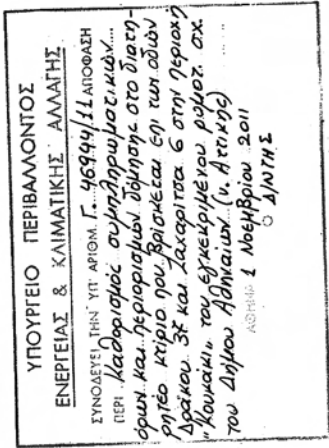 ΥΠΟΥΡΓΕΙΟ ΠΕΡΙΒΑΛΛΟΝΤΟΣ
ΕΝΕΡΓΕΙΑΣ & ΚΛΙΜΑΤΙΚΗΣ ΑΛΛΑΓΗΣ
ΣΥΝΟΔΕΥΕΙ ΤΗΝ ΥΠ' ΑΡΙΘΜ. Γ. 46944/11 ΑΠΟΦΑΣΗ
ΠΕΡΙ Καθορισμός συμπληρωματικών....
όρων και περιορισμών δόμησης στο διατη-
ρητέο κτίριο που βρίσκεται επί των οδών
Δράκου 37 και Ζαχαρίτσα 6 στην περιοχή
"Κουκάκι" του εγκεκριμένου ρυμοτ. σχ.
του Δήμου Αθηναίων (ν. Αττικής)
ΑΘΗΝΑ 1 Νοεμβρίου 2011
Ο Δ/ΝΤΗΣ